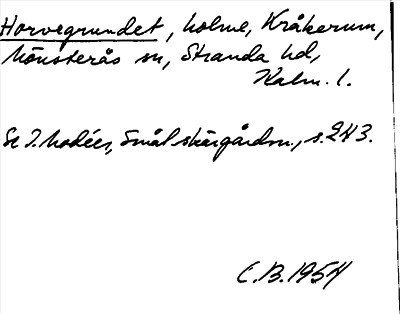 Horvegrundet, holme, Kråkerum,
Mönsterås sn, Stranda hd,
Kalm. l.
Se I. Modéer, Smål skärgårdsn., s. 243.
C.B. 1954